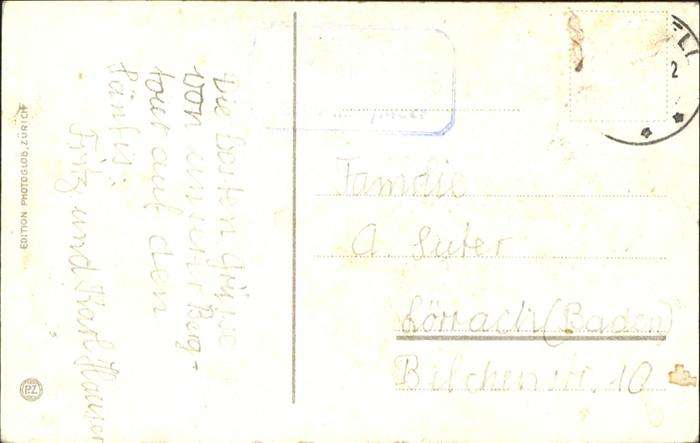 Die besten Grüsse
von unserer Berg-
tour auf den
Säntis:
Fritz und Karl Hauser
Familie
A. Suter
Lörrach (Baden)
Belchenstr. 10
EDITION PHOTOGLOB, ZÜRICH
PZ
2